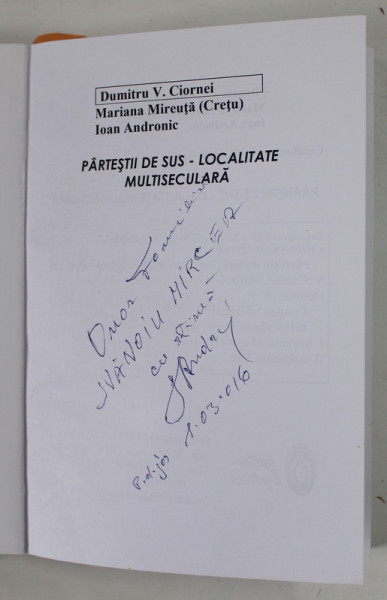 Dumitru V. Ciornei
Mariana Mireuță (Crețu)
Ioan Andronic
PÂRTEȘTII DE SUS - LOCALITATE
MULTISECULARĂ
Onor familiei
IVĂNOIU MIRCEA
cu stimă
P. d. jos 1.03.016